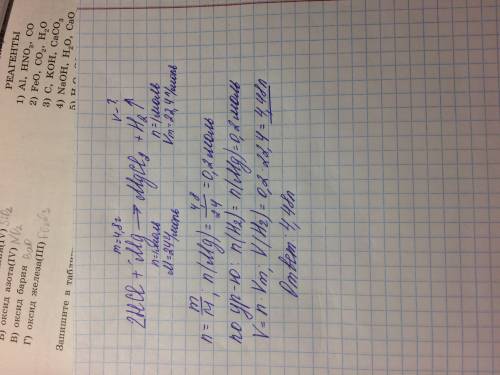 РЕАГЕНТЫ
1) Al, HNO₃, CO
2) FeO, CO₂, H₂O
3) C, KOH, CaCO₃
4) NaOH, H₂O, CaO
В) оксид азота(IV)
В) оксид бария BaO
Г) оксид железа(III)
Запишите в таблиц
m=4,8г V-?
2HCl + Mg → MgCl₂ + H₂↑
n=1моль n=1моль
M=24г/моль Vm=22,4л/моль
n = m/M, n(Mg) = 4,8/24 = 0,2 моль
по ур-ю: n(H₂) = n(Mg) = 0,2 моль
V = n · Vm, V(H₂) = 0,2 · 22,4 = 4,48л
Ответ 4,48л